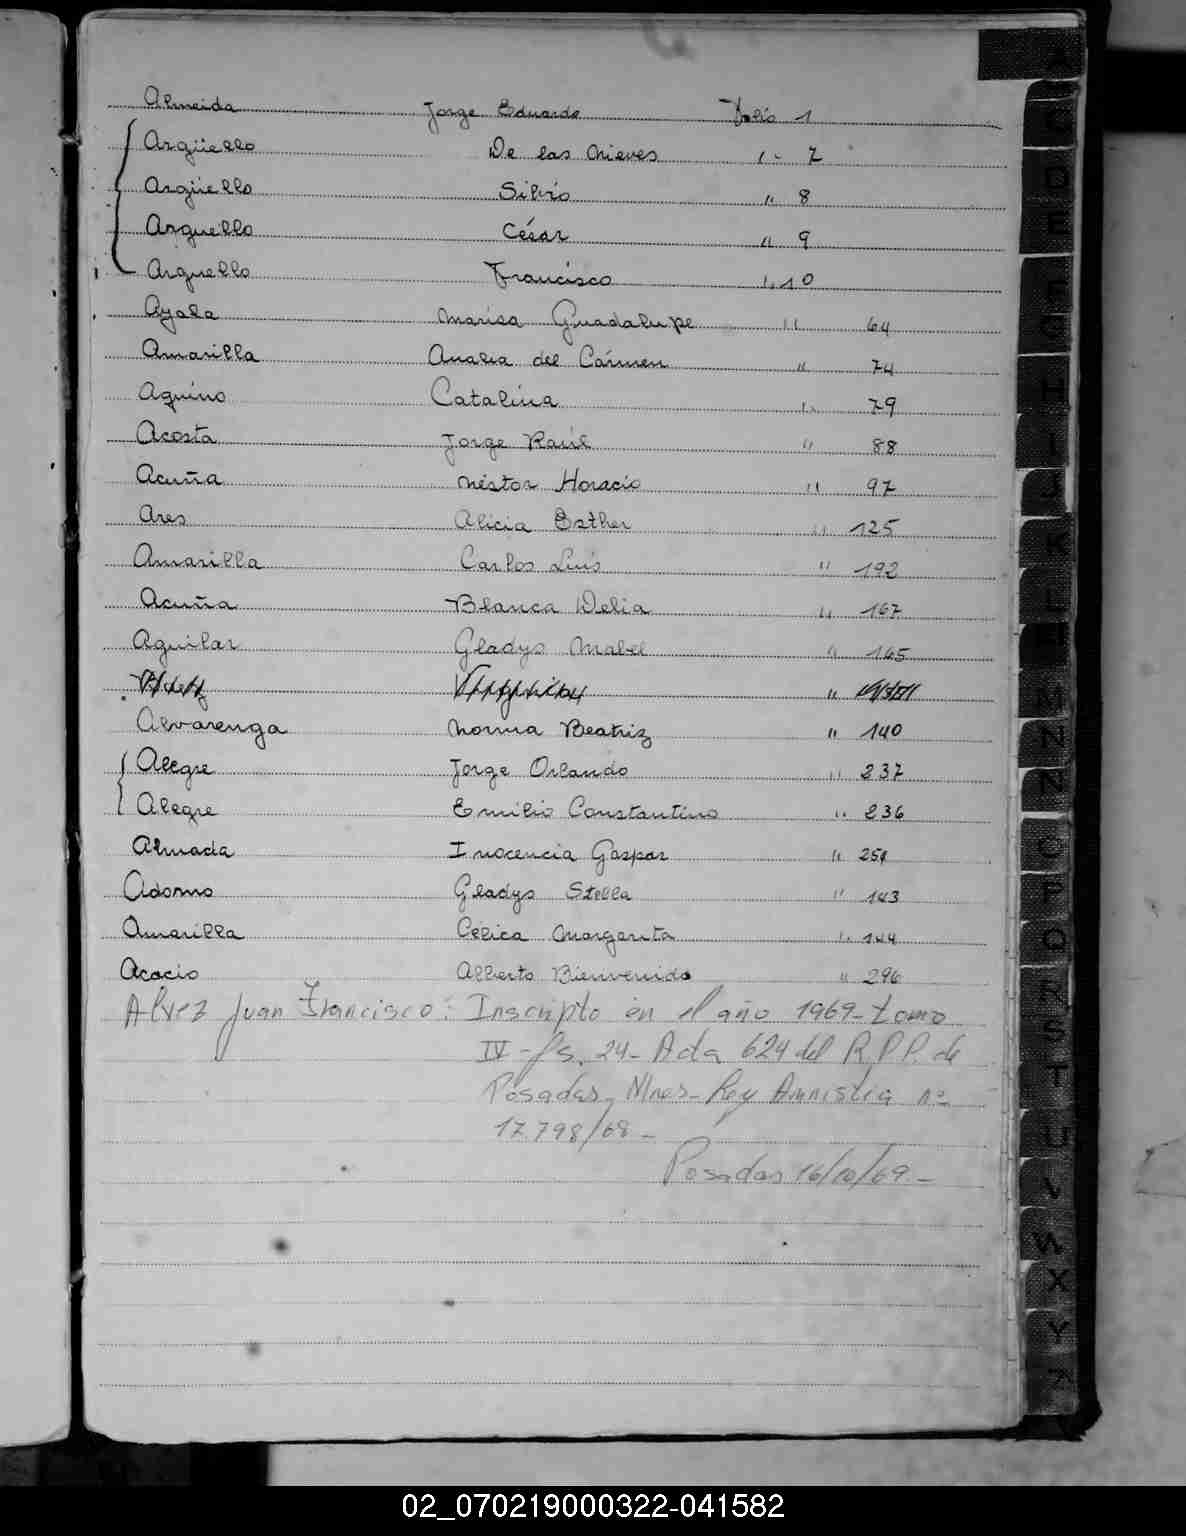 Almeida Jorge Eduardo Folio 1
Argüello De las Nieves " 7
Argüello Silvio " 8
Arguello César " 9
Arguello Francisco " 10
Ayala Marisa Guadalupe " 64
Amarilla Analia del Cármen " 74
Aquino Catalina " 79
Acosta Jorge Raúl " 88
Acuña Néstor Horacio " 97
Ares Alicia Esther " 125
Amarilla Carlos Luis " 192
Acuña Blanca Delia " 167
Aguilar Gladys Mabel " 165
"
Alvarenga Norma Beatriz " 140
Alegre Jorge Orlando " 237
Alegre Emilio Constantino " 236
Almada Inocencia Gaspar " 251
Adorno Gladys Stella " 143
Amarilla Célica Margarita " 144
Acacio Alberto Bienvenido " 296
Alvez Juan Francisco: Inscripto en el año 1969- tomo
IV - fs. 24- Acta 624 del R.P.P. de
Posadas, Mnes- Ley Amnistia nº
17.798/68 -
Posadas 16/10/69.-
A
C
D
E
F
G
H
I
J
K
L
M
N
N
Ñ
O
P
Q
R
S
T
U
V
W
X
Y
Z
02_070219000322-041582